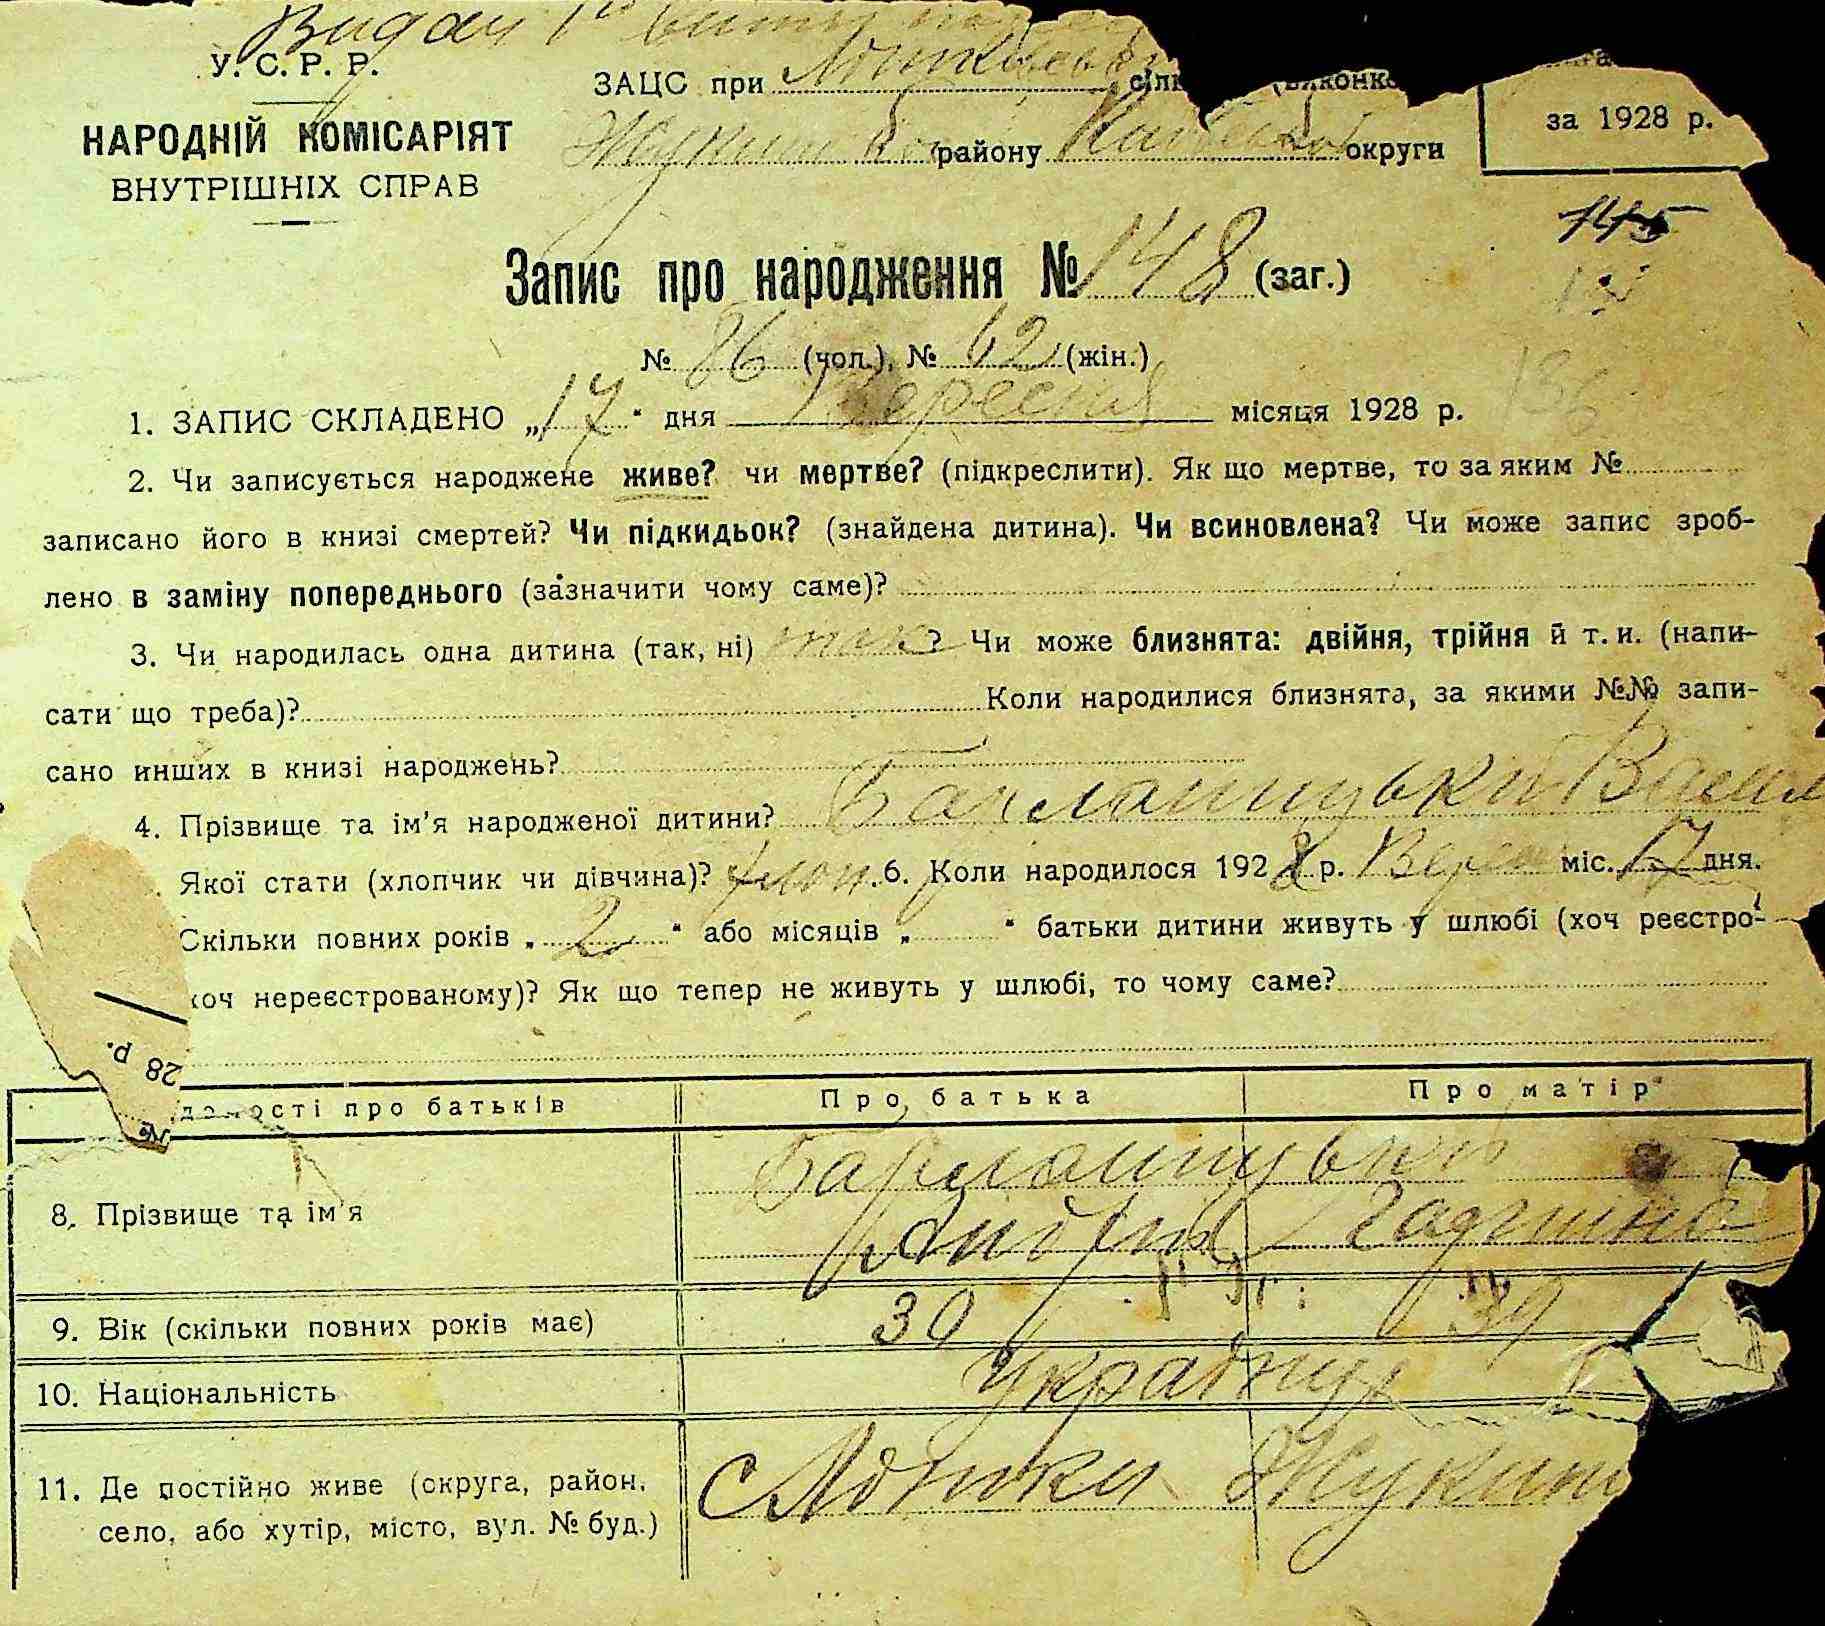 Видан
У. С. Р. Р.
ЗАЦС при сіль (виконко
НАРОДНІЙ КОМІСАРІЯТ
району округи
за 1928 р.
ВНУТРІШНІХ СПРАВ
145
Запис про народження № 148 (заг.)
№ 86 (чол.), № 62 (жін.)
136
1. ЗАПИС СКЛАДЕНО „17" дня Вересня місяця 1928 р.
2. Чи записується народжене живе? чи мертве? (підкреслити). Як що мертве, то за яким №
записано його в книзі смертей? Чи підкидьок? (знайдена дитина). Чи всиновлена? Чи може запис зроб-
лено в заміну попереднього (зазначити чому саме)?
3. Чи народилась одна дитина (так, ні) так? Чи може близнята: двійня, трійня й т. и. (напи-
сати що треба)? Коли народилися близнята, за якими №№ запи-
сано инших в книзі народжень?
4. Прізвище та ім'я народженої дитини? Василь
Якої стати (хлопчик чи дівчина)? хлоп. 6. Коли народилося 1928 р. Верес міс. 17 дня.
Скільки повних років „2" або місяців „ " батьки дитини живуть у шлюбі (хоч реєстро-
хоч нереєстрованому)? Як що тепер не живуть у шлюбі, то чому саме?
28 р.
№
домості про батьків Про батька Про матір
8. Прізвище та ім'я
Андрій
9. Вік (скільки повних років має) 30 39
10. Національність Українці
11. Де постійно живе (округа, район, с Лошки Жукин
село, або хутір, місто, вул. № буд.)